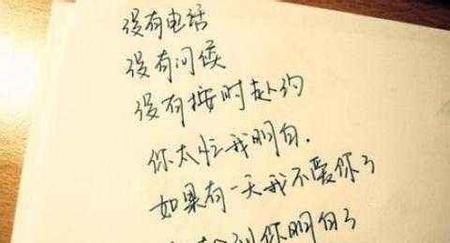 没有电话
没有问候
没有按时赴约
你太忙我明白.
如果有一天我不爱你了
到你明白了